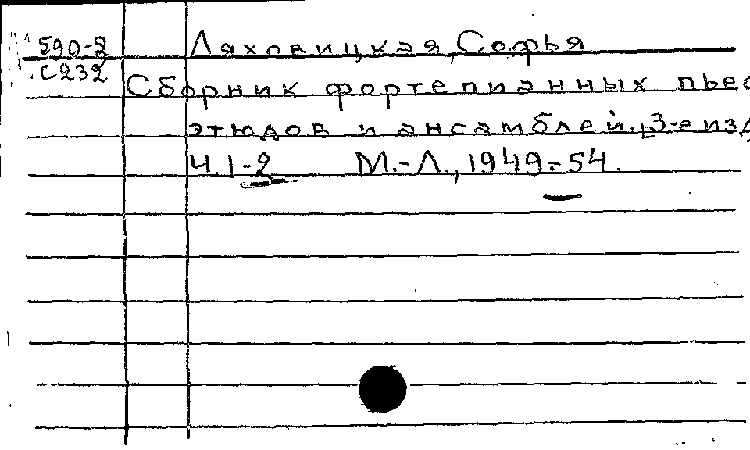 590-2 Ляховицкая, Софья
С232
Сборник фортепианных пьес
этюдов и ансамблей. 3-е изд
Ч. 1-2 М.-Л., 1949-54.